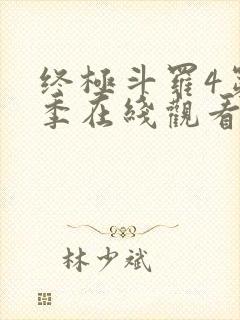 终極斗羅4
季在綫觀看
林少斌